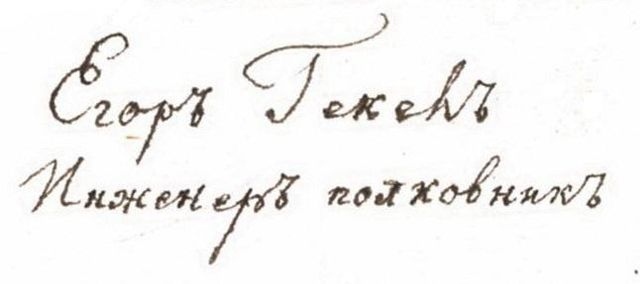 Егоръ Гекель
Инженеръ полковникъ